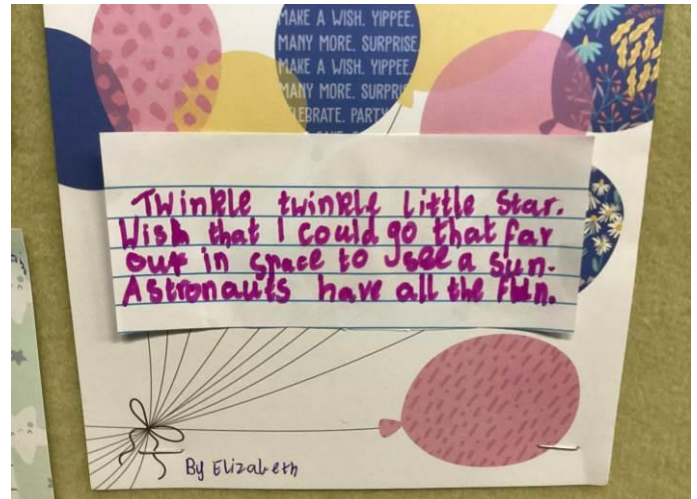 MAKE A WISH. YIPPEE.
MANY MORE. SURPRISE
MAKE A WISH. YIPPEE.
MANY MORE. SURPRI
LEBRATE. PARTY
Twinkle twinkle little star.
Wish that I could go that far
out in space to see a sun.
Astronauts have all the fun.
By Elizabeth